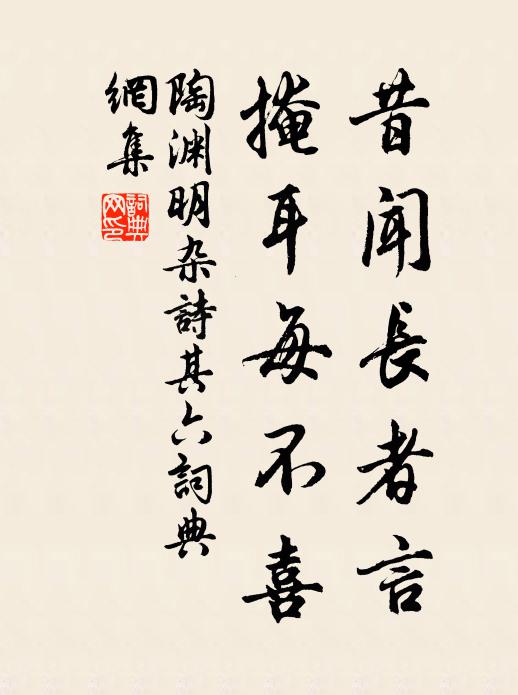 昔聞長者言
掩耳每不喜
陶渊明杂詩其六詞典
網集
詞典
网印